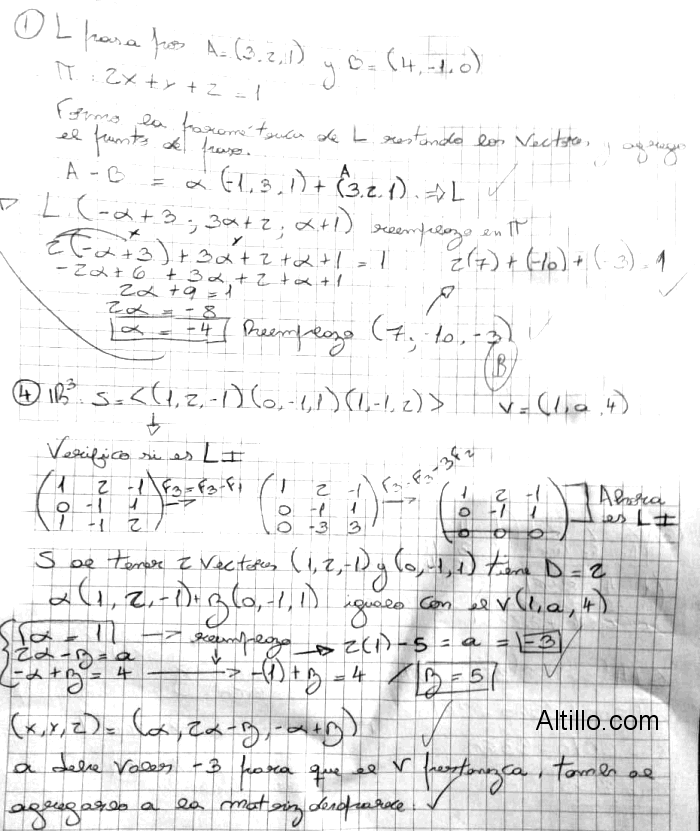 ① L pasa por A=(3,2,1) y B=(4,-1,0)
π: 2x+y+z=1
Formo la paramétrica de L restando los vectores, y agrego
el punto de paso.
A-B = α(-1,3,1)+(3,2,1) ⇒ L
A
L (-α+3; 3α+2, α+1) reemplazo en π
x y
2(-α+3)+3α+2+α+1=1 2(7)+(-10)+(-3)=1
-2α+6+3α+2+α+1
2α+9=1
2α=-8
α=-4 Reemplazo (7;-10,-3)
B
④ IR³ S=<(1,2,-1)(0,-1,1)(1,-1,2)> V=(1,a,4)
Verifico si es LI
(1 2 -1) F3=F3-F1 (1 2 -1) F3=F3-3F2 (1 2 -1) Ahora
(0 -1 1) → (0 -1 1) → (0 -1 1) es LI
(1 -1 2) (0 -3 3) (0 0 0)
S al tener 2 vectores (1,2,-1) y (0,-1,1) tiene D=2
α(1,2,-1)+B(0,-1,1) igualo con el V(1,a,4)
α=1 → reemplazo → 2(1)-5=a=-3
2α-B=a
-α+B=4 → -(1)+B=4 / B=5
(x,y,z)=(α,2α-B,-α+B)
Altillo.com
a debe valer -3 para que el V pertenezca, también al
agregarlo a la matriz desaparece.